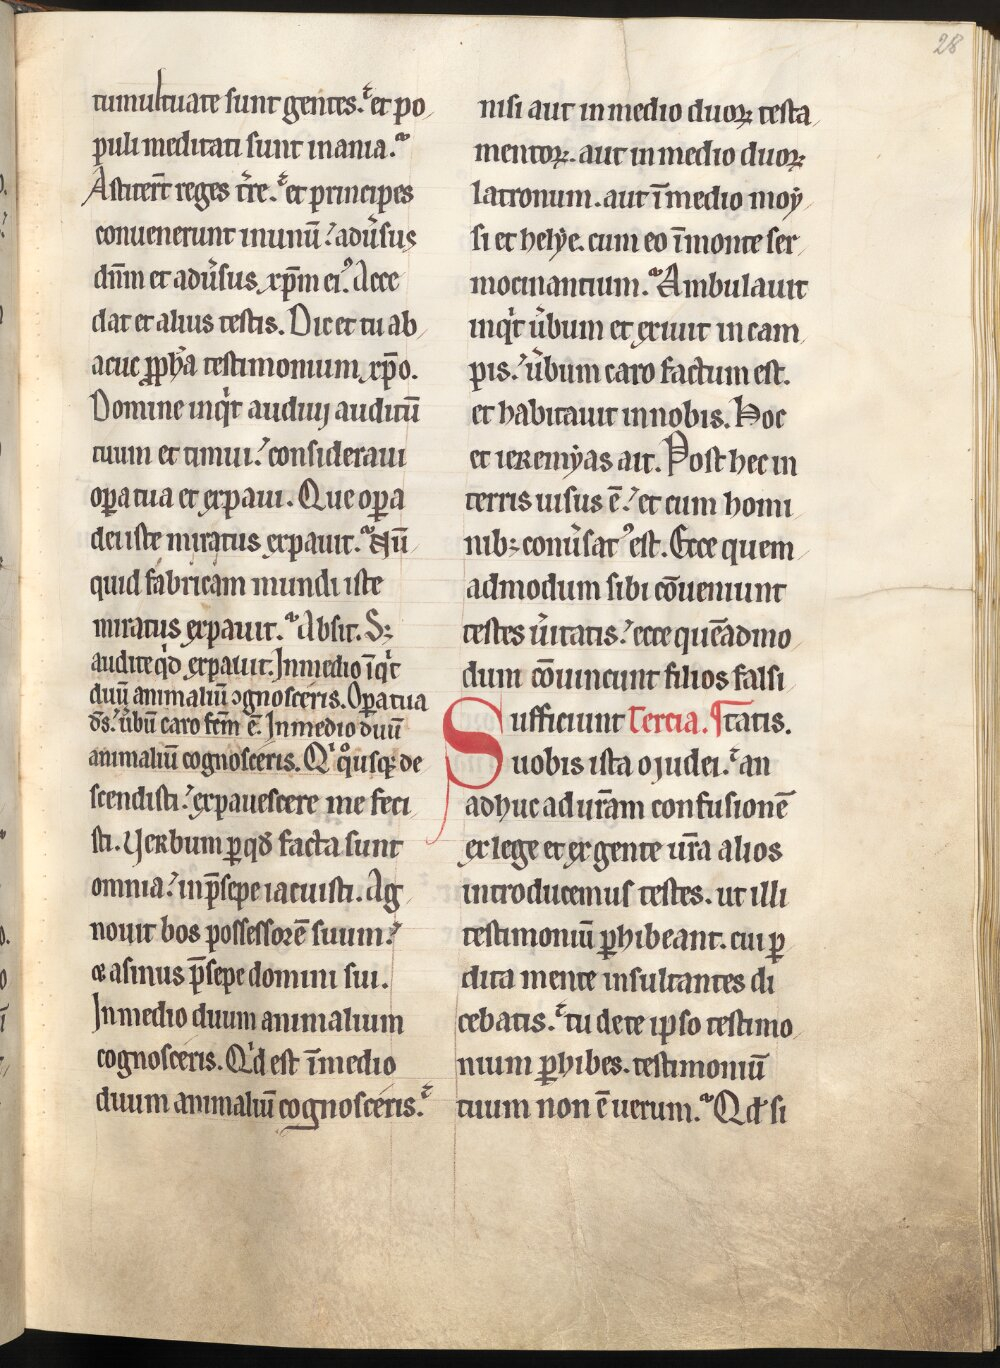 28
tumultuate sunt gentes. et po
puli meditati sunt inania.
Astiter̄t reges t̄re. et principes
conuenerunt inunū? adu̓sus
dn̄m et adu̓sus xp̄m eiꝰ. Acce
dat et alius testis. Dic et tu ab
acuc ꝓph̓a testimonium xp̄o.
Domine inqͥt audiuj auditū
tuum et timui? consideraui
oꝑa tua et expaui. Que oꝑa
dei iste miratus expauit. Nū
quid fabricam mundi iste
miratus expauit. Absit. Sꝫ
audite qͩ expauit. Jnmedio īqͥt
duū animaliū ꝯgnosceris. Oꝑa tua
ds̄? u̓bū caro fc̄m ē. Jnmedio duū
animaliū cognosceris. Qͥ qͦusqꝫ de
scendisti? expauescere me feci
sti. Verbum ꝑ qd̄ facta sunt
omnia? in p̄sepe iacuisti. Ag
nouit bos possessorē suum?
et asinus p̄sepe domini sui.
Jnmedio duum animalium
cognosceris. Qͥd est īmedio
duum animaliū cognosceris.
nisi aut inmedio duoꝝ testa
mentoꝝ. aut inmedio duoꝝ
latronum. aut īmedio moẏ
si et helẏe. cum eo īmonte ser
mocinantium. Ambulauit
inqͥt u̓bum et exiuit in cam
pis? u̓bum caro factum est.
et habitauit innobis. Hoc
et ieremẏas ait. Post hec in
terris uisus ē? et cum homi
nibꝫ conu̓satꝰ est. Ecce quem
admodum sibi cōueniunt
testes u̓itatis? ecce quēadmo
dum cōuincunt filios falsi
Sufficiunt Tercia. tatis.
uobis ista o judei. an
adhuc ad ur̄am confusionē
ex lege et ex gente ur̄a alios
introducemus testes. ut illi
testimoniū ꝑhibeant. cui ꝑ
dita mente insultantes di
cebatis. tu de te ipso testimo
nium ꝑhibes. testimoniū
tuum non ē uerum. Qd̓ si